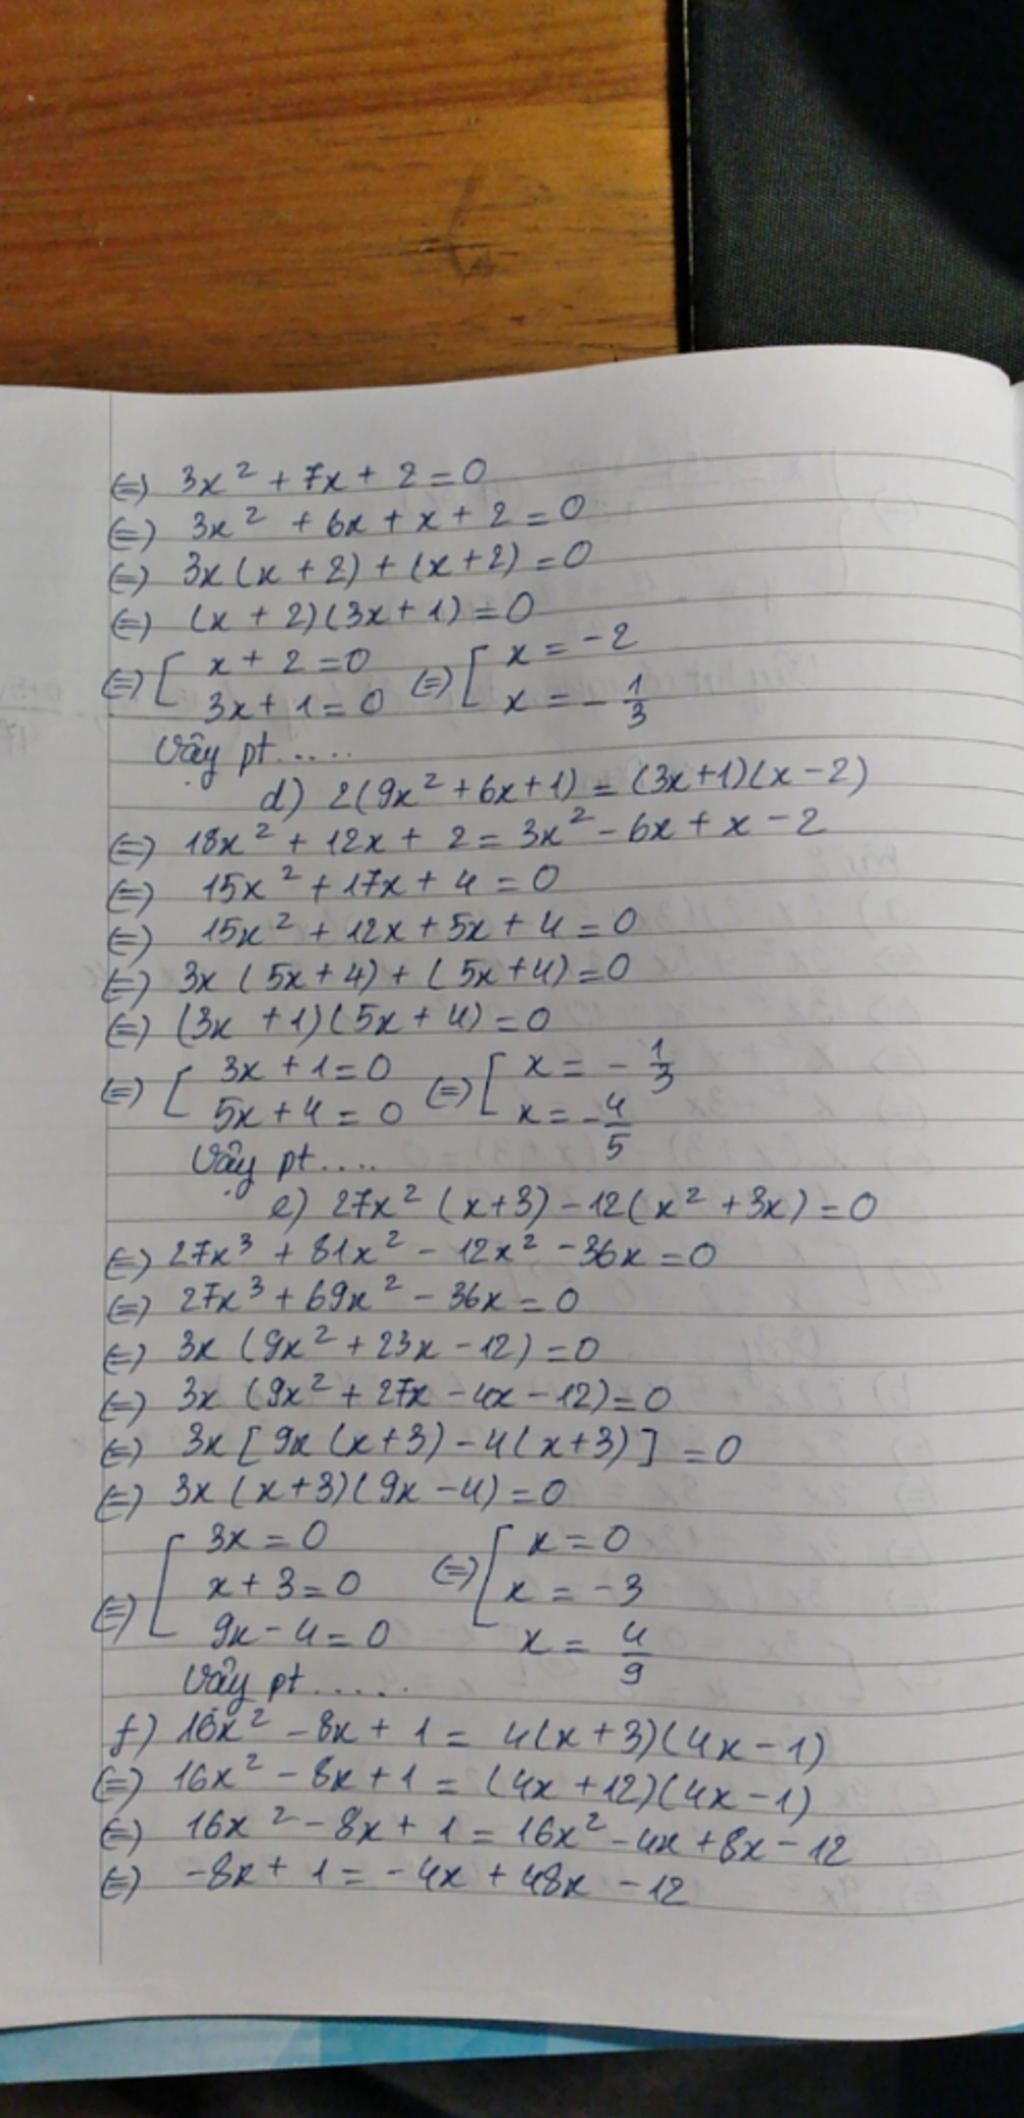 (=) 3x² + 7x + 2 = 0
(=) 3x² + 6x + x + 2 = 0
(=) 3x(x + 2) + (x + 2) = 0
(=) (x + 2)(3x + 1) = 0
(=) [ x + 2 = 0 (=) [ x = -2
3x + 1 = 0 x = - 1/3
Vậy pt.....
d) 2(9x² + 6x + 1) = (3x+1)(x - 2)
(=) 18x² + 12x + 2 = 3x² - 6x + x - 2
(=) 15x² + 17x + 4 = 0
(=) 15x² + 12x + 5x + 4 = 0
(=) 3x (5x + 4) + (5x + 4) = 0
(=) (3x + 1)(5x + 4) = 0
(=) [ 3x + 1 = 0 (=) [ x = - 1/3
5x + 4 = 0 x = - 4/5
Vậy pt....
e) 27x² (x + 3) - 12(x² + 3x) = 0
(=) 27x³ + 81x² - 12x² - 36x = 0
(=) 27x³ + 69x² - 36x = 0
(=) 3x (9x² + 23x - 12) = 0
(=) 3x (9x² + 27x - 4x - 12) = 0
(=) 3x [9x (x+3) - 4(x+3)] = 0
(=) 3x (x+3)(9x - 4) = 0
(=) [ 3x = 0 (=) [ x = 0
x + 3 = 0 x = -3
9x - 4 = 0 x = 4/9
Vậy pt.....
f) 16x² - 8x + 1 = 4(x + 3)(4x - 1)
(=) 16x² - 8x + 1 = (4x + 12)(4x - 1)
(=) 16x² - 8x + 1 = 16x² - 4x + 8x - 12
(=) -8x + 1 = -4x + 48x - 12